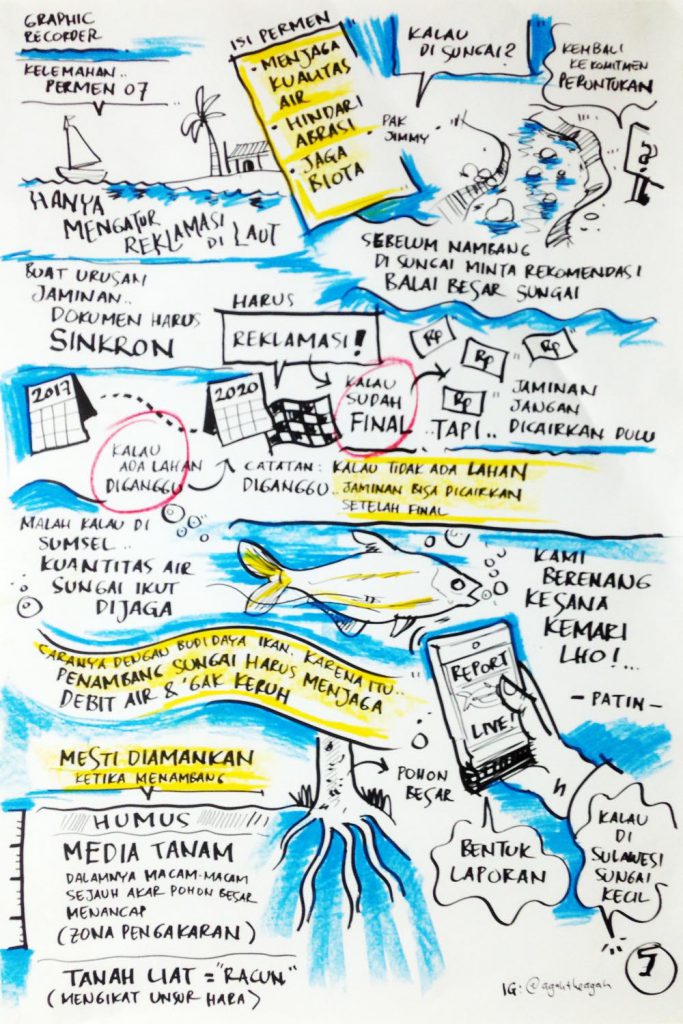 GRAPHIC
RECORDER
KELEMAHAN..
PERMEN 07
HANYA
MENGATUR
REKLAMASI
DI LAUT
ISI PERMEN
• MENJAGA
KUALITAS
AIR
• HINDARI
ABRASI
• JAGA
BIOTA
KALAU
DI SUNGAI?
PAK
JIMMY
KEMBALI
KE KOMITMEN
PERUNTUKAN
SEBELUM NAMBANG
DI SUNGAI MINTA REKOMENDASI
BALAI BESAR SUNGAI
BUAT URUSAN
JAMINAN..
DOKUMEN HARUS
SINKRON
HARUS
REKLAMASI!
2017
2020
KALAU
ADA LAHAN
DIGANGGU
KALAU
SUDAH
FINAL
Rp
Rp
Rp
Rp
..TAPI..
JAMINAN
JANGAN
DICAIRKAN DULU
CATATAN: KALAU TIDAK ADA LAHAN
DIGANGGU..JAMINAN BISA DICAIRKAN
SETELAH FINAL
MALAH KALAU DI
SUMSEL..
KUANTITAS AIR
SUNGAI IKUT
DIJAGA
KAMI
BERENANG
KESANA
KEMARI
LHO!...
- PATIN -
CARANYA DENGAN BUDIDAYA IKAN. KARENA ITU..
PENAMBANG SUNGAI HARUS MENJAGA
DEBIT AIR & 'GAK KERUH
REPORT
LIVE!
MESTI DIAMANKAN
KETIKA MENAMBANG
POHON
BESAR
BENTUK
LAPORAN
KALAU
DI
SULAWESI
SUNGAI
KECIL
HUMUS
MEDIA TANAM
DALAMNYA MACAM-MACAM
SEJAUH AKAR POHON BESAR
MENANCAP
(ZONA PENGAKARAN)
TANAH LIAT = "RACUN"
(MENGIKAT UNSUR HARA)
IG: @agahtheagah